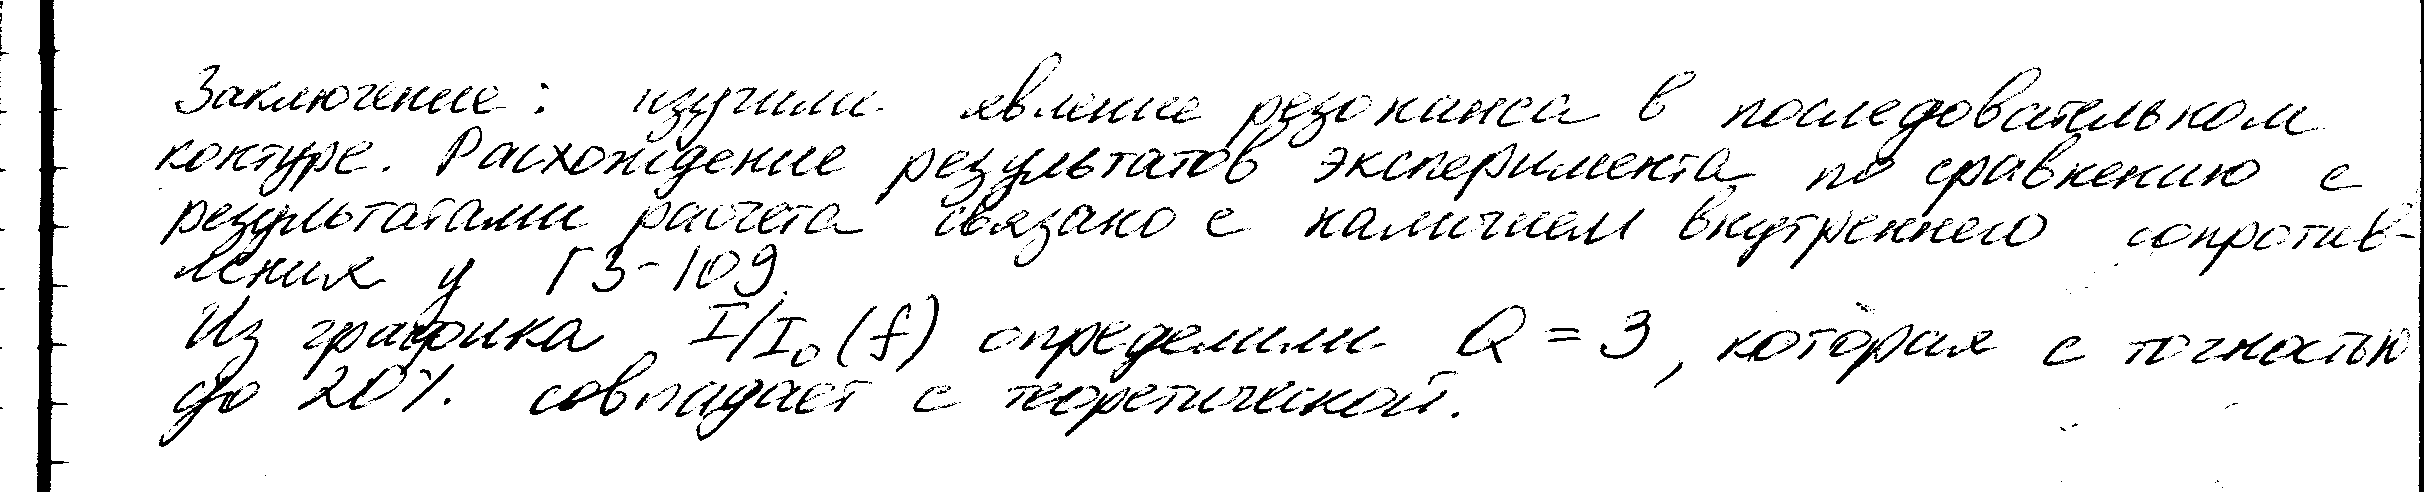 Заключение: изучили явление резонанса в последовательном
контуре. Расхождение результатов эксперимента по сравнению с
результатами расчета связано с наличием внутреннего сопротив-
ления у ГЗ-109
Из графика I/I₀(f) определили Q = 3, которая с точностью
до 20% совпадает с теоретической.